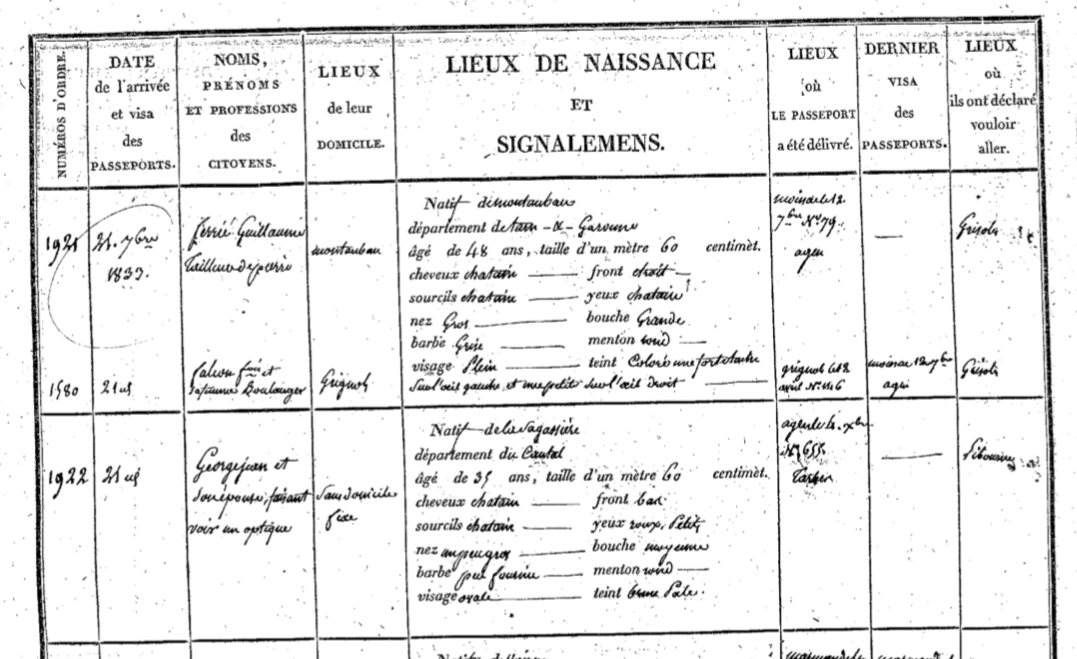 NUMÉROS D'ORDRE.
DATE
de l'arrivée
et visa
des
PASSEPORTS.
NOMS,
PRÉNOMS
ET PROFESSIONS
des
CITOYENS.
LIEUX
de leur
DOMICILE.
LIEUX DE NAISSANCE
ET
SIGNALEMENS.
LIEUX
où
LE PASSEPORT
a été délivré.
DERNIER
VISA
des
PASSEPORTS.
LIEUX
où
ils ont déclaré
vouloir
aller.
1921
21. 7bre
1833.
ferrié Guillaume
Tailleur de pierre
montauban
Natif de montauban
département de tarn-&-Garonne
âgé de 48 ans, taille d'un mètre 60 centimèt.
cheveux chatain front étroit
sourcils chatain yeux chatain
nez Gros bouche Grande
barbe Grise menton rond
visage Plein teint Coloré une forte tache
sur l'œil gauche et une petite sur l'œil droit
moissac le 12
7bre N° 79.
agen
Grisoles
1580
21 id
falcou
sa femme Boulanger
Grignols
grignols le 12
avril N° 116
moissac 12 7bre
agen
Grisoles
1922
21 id
George jean et
son épouse, faisant
voir un optique
Sans domicile
fixe
Natif de la Ségassière
département du Cantal
âgé de 35 ans, taille d'un mètre 60 centimèt.
cheveux chatain front bas
sourcils chatain yeux roux, Petits
nez un peu gros bouche moyenne
barbe peu fournie menton rond
visage ovale teint brun Pale.
agen le 4. xbre
N° 655